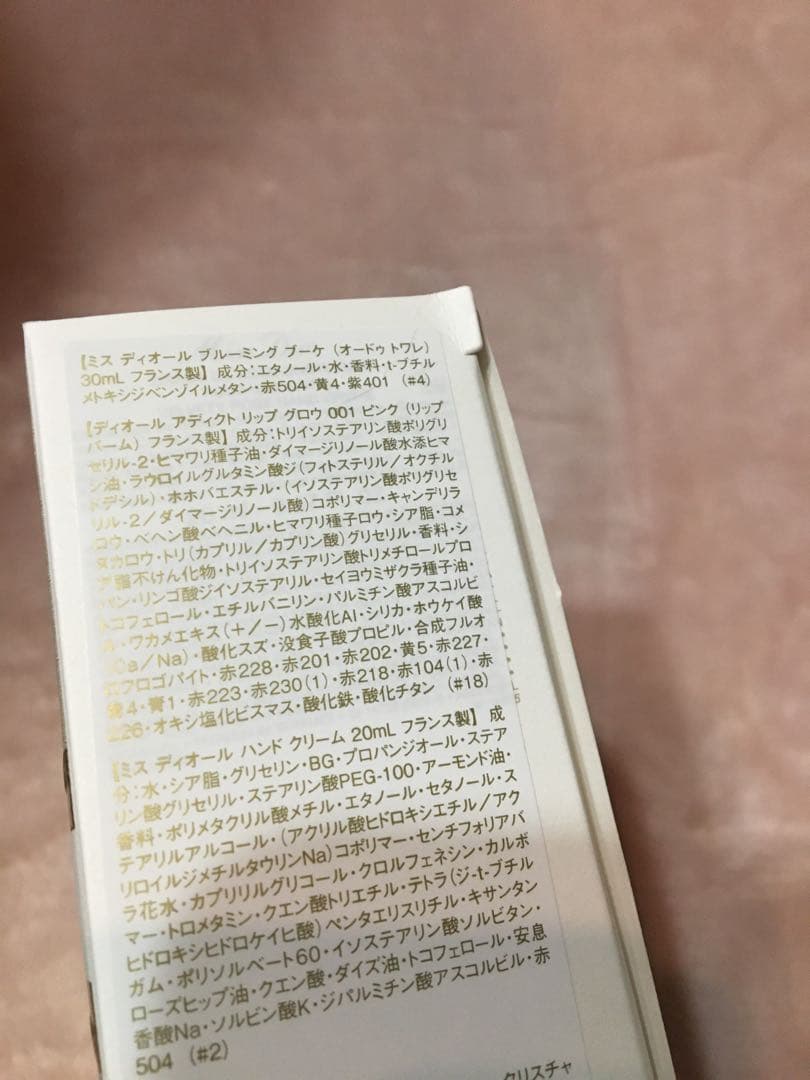 【ミス ディオール ブルーミング ブーケ (オードゥ トワレ)
30mL フランス製】 成分:エタノール・水・香料・t-ブチル
メトキシジベンゾイルメタン・赤504・黄4・紫401 (#4)
【ディオール アディクト リップ グロウ 001 ピンク (リップ
バーム) フランス製】 成分:トリイソステアリン酸ポリグリ
セリル-2・ヒマワリ種子油・ダイマージリノール酸水添ヒマ
シン油・ラウロイルグルタミン酸ジ(フィトステリル/オクチル
ドデシル)・ホホバエステル・(イソステアリン酸ポリグリセ
リル-2/ダイマージリノール酸)コポリマー・キャンデリラ
ロウ・ベヘン酸ベヘニル・ヒマワリ種子ロウ・シア脂・コメ
ヌカロウ・トリ(カプリル/カプリン酸)グリセリル・香料・シ
ア脂不けん化物・トリイソステアリン酸トリメチロールプロ
パン・リンゴ酸ジイソステアリル・セイヨウミザクラ種子油・
トコフェロール・エチルバニリン・パルミチン酸アスコルビ
ル・ワカメエキス(+/-)水酸化Al・シリカ・ホウケイ酸
(Ca/Na)・酸化スズ・没食子酸プロピル・合成フルオ
ロフロゴパイト・赤228・赤201・赤202・黄5・赤227・
黄4・青1・赤223・赤230(1)・赤218・赤104(1)・赤
226・オキシ塩化ビスマス・酸化鉄・酸化チタン (#18)
【ミス ディオール ハンド クリーム 20mL フランス製】 成
分:水・シア脂・グリセリン・BG・プロパンジオール・ステア
リン酸グリセリル・ステアリン酸PEG-100・アーモンド油・
香料・ポリメタクリル酸メチル・エタノール・セタノール・ス
テアリルアルコール・(アクリル酸ヒドロキシエチル/アク
リロイルジメチルタウリンNa)コポリマー・センチフォリアバ
ラ花水・カプリリルグリコール・クロルフェネシン・カルボ
マー・トロメタミン・クエン酸トリエチル・テトラ(ジ-t-ブチル
ヒドロキシヒドロケイヒ酸)ペンタエリスリチル・キサンタン
ガム・ポリソルベート60・イソステアリン酸ソルビタン・
ローズヒップ油・クエン酸・ダイズ油・トコフェロール・安息
香酸Na・ソルビン酸K・ジパルミチン酸アスコルビル・赤
504 (#2)
クリスチャ